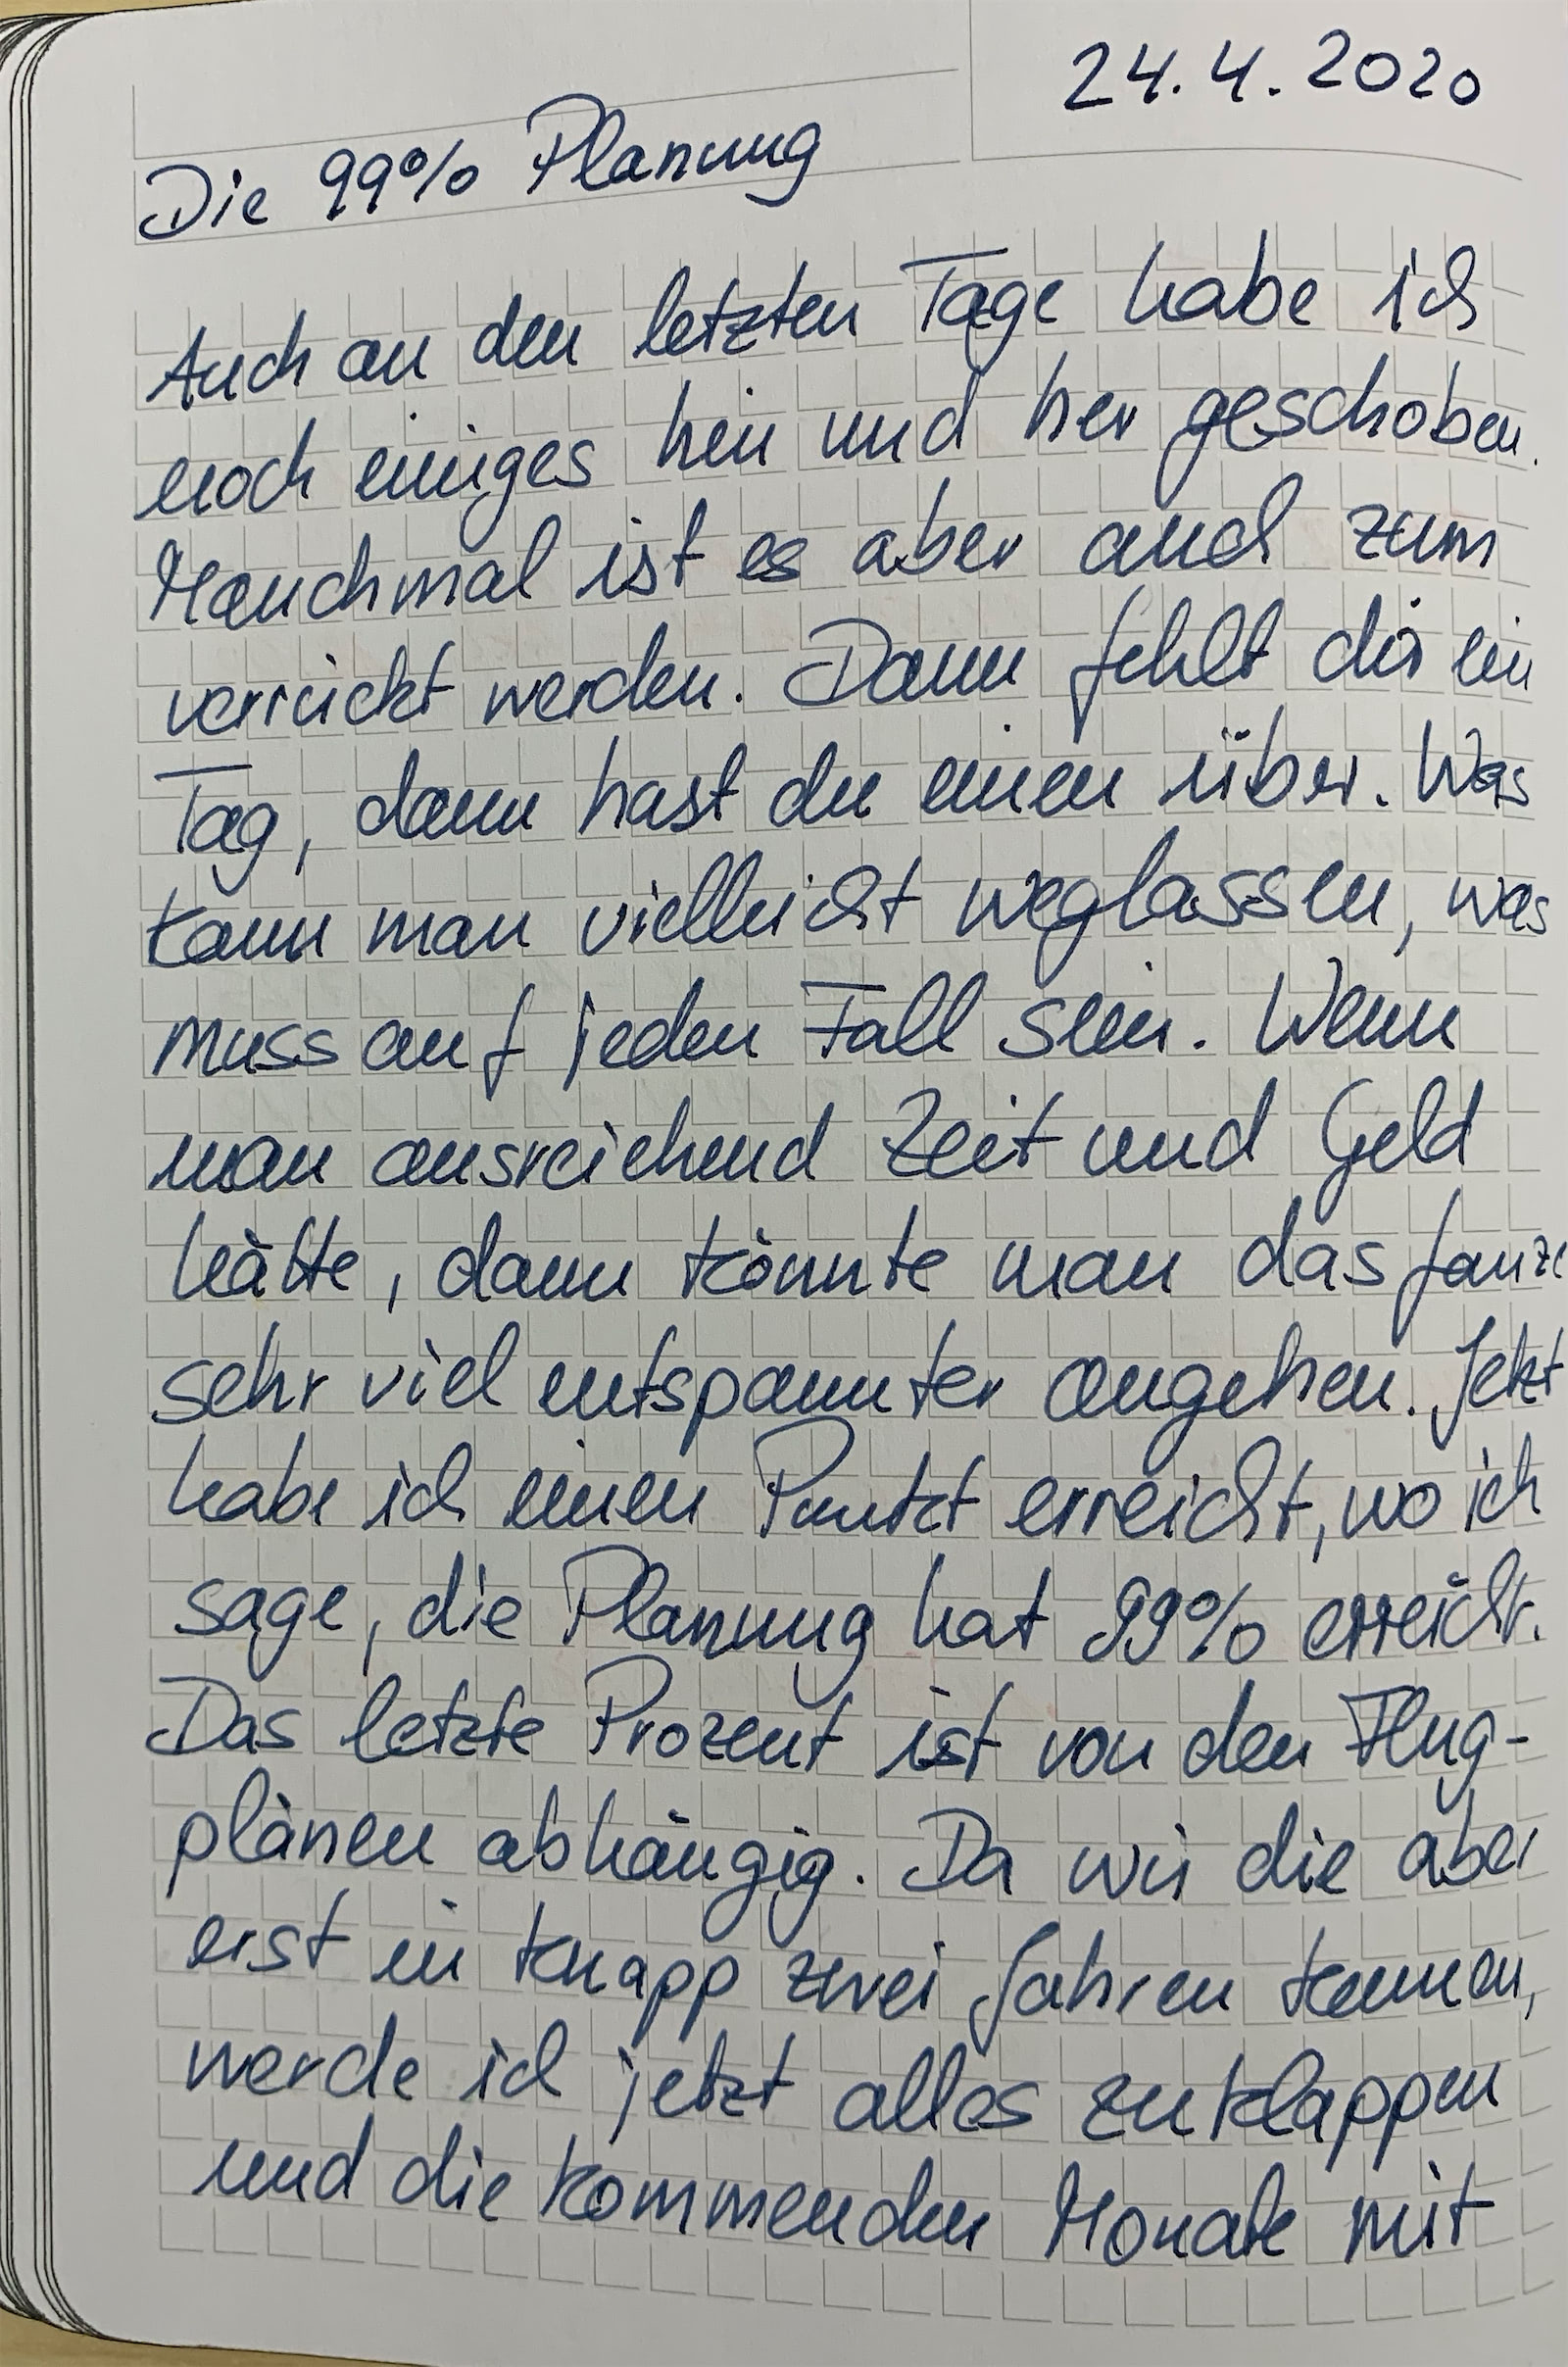 24.4.2020
Die 99% Planung
Auch an den letzten Tage habe ich
noch einiges hin und her geschoben.
Manchmal ist es aber auch zum
verrückt werden. Dann fehlt dir ein
Tag, dann hast du einen über. Was
kann man vielleicht weglassen, was
muss auf jeden Fall sein. Wenn
man ausreichend Zeit und Geld
hätte, dann könnte man das ganze
sehr viel entspannter angehen. Jetzt
habe ich einen Punkt erreicht, wo ich
sage, die Planung hat 99% erreicht.
Das letzte Prozent ist von den Flug-
plänen abhängig. Da wir die aber
erst in knapp zwei Jahren kennen,
werde ich jetzt alles zuklappen
und die kommenden Monate mit